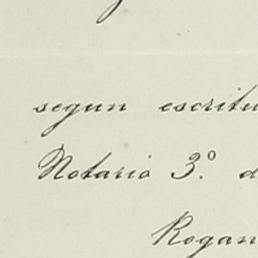 segun escritu
Notario 3º. d
Rogan